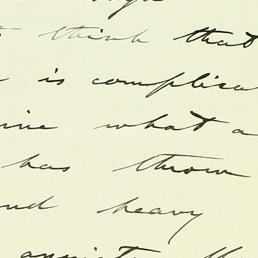 think that
is complica
ine what a
has throw
nd heavy